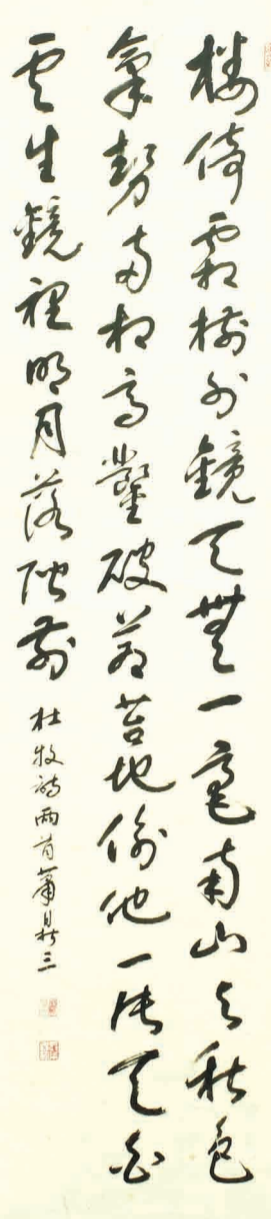 樓倚霜樹外鏡天無一毫南山与秋色
氣勢兩相高鑿破蒼苔地偷他一片天白
雲生鏡裡明月落階前
杜牧詩兩首蕭鼎三